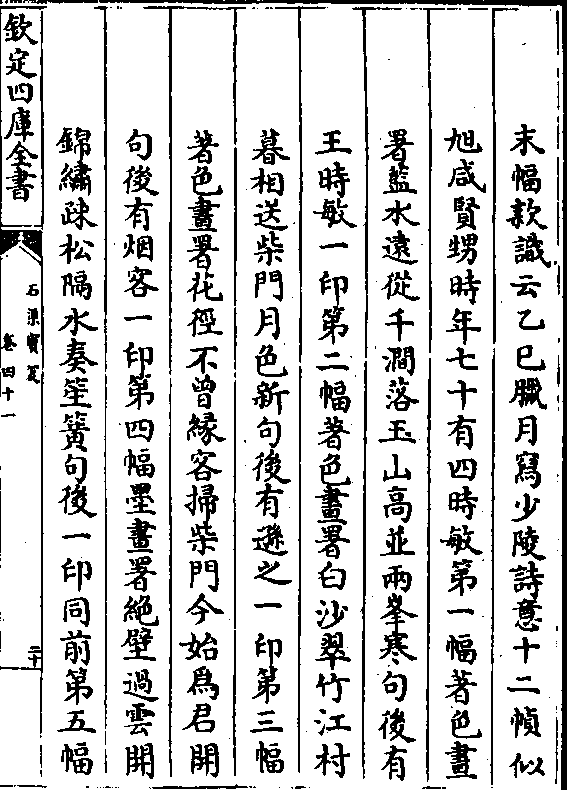 末幅款識云乙巳臘月寫少陵詩意十二幀似
旭咸賢甥時年七十有四時敏第一幅著色畫
署藍水遠從千澗落玉山高並兩峯寒句後有
王時敏一印第二幅著色畫署白沙翠竹江村
暮相送柴門月色新句後有遜之一印第三幅
著色畫署花徑不曾緣客掃柴門今始爲君開
句後有烟客一印第四幅墨畫署絶壁過雲開
錦繡疎松隔水奏笙簧句後一印同前第五幅
欽定四庫全書
石渠寶笈
卷四十一
二十